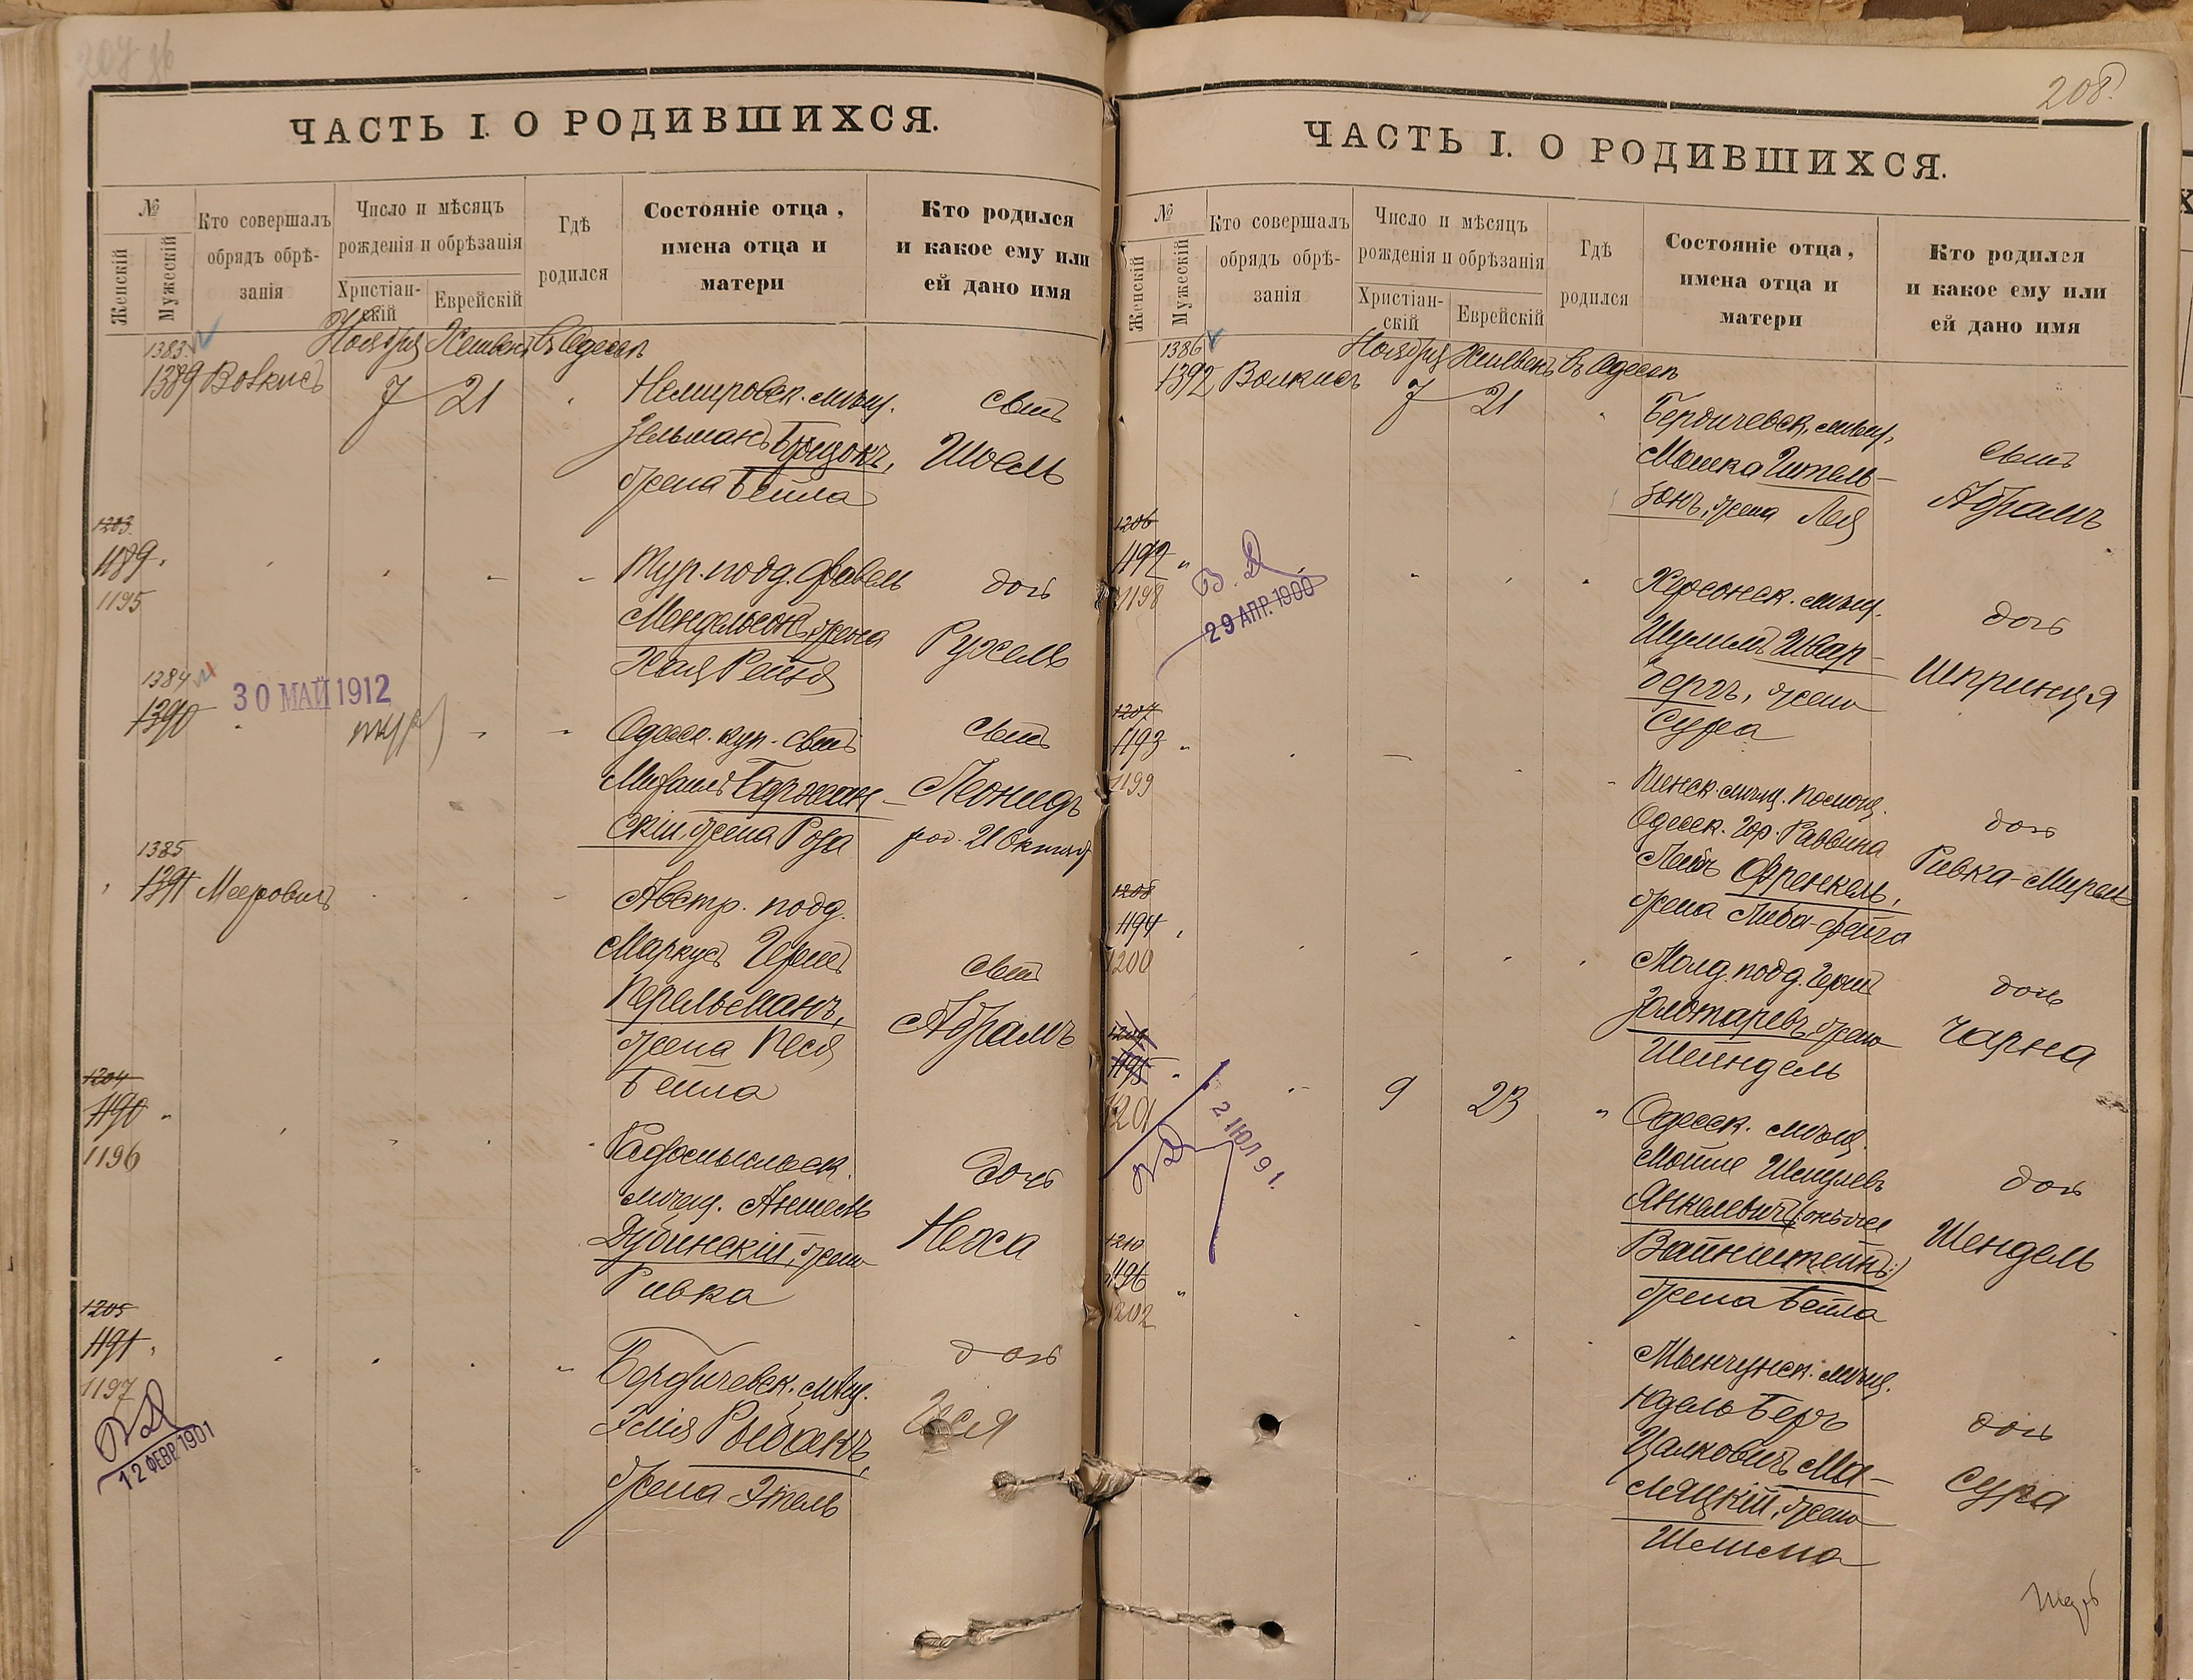 207 об
ЧАСТЬ I. О РОДИВШИХСЯ.
№
Женскій
Мужескій
Кто совершалъ
обрядъ обрѣ-
занія
Число и мѣсяцъ
рожденія и обрѣзанія
Христіан-
скій
Еврейскій
Гдѣ
родился
Состояніе отца,
имена отца и
матери
Кто родился
и какое ему или
ей дано имя
Ноября Хешвенъ Въ Одессѣ
1383
1389 Волкисъ 7 21
Немировск. мѣщ.
Зельманъ
жена Бейла
сынъ
Шоель
1203
1189
1195
Тур. подд. Фавель
Мендельсонъ, жена
Хая Рейзя
дочь
Рухель
1384
1390
30 МАЙ 1912
Одесск. куп. сынъ
Михаилъ Буржан-
скій жена Роза
сынъ
Леонидъ
род. 21 Октяб
1385
1391 Мееровичъ
Австр. подд.
Маркусъ Гершъ
Перельманъ,
жена Песя
Бейла
сынъ
Абрамъ
1204
1190
1196
Радомысльск.
мѣщ. Аншель
Дубинскій, жена
Ривка
дочь
Неха
1205
1191
1197
12 ФЕВР. 1901
Бердичевск. мѣщ.
Эліа Рыбакъ,
жена Этель
дочь
208
ЧАСТЬ I. О РОДИВШИХСЯ.
№
Женскій
Мужескій
Кто совершалъ
обрядъ обрѣ-
занія
Число и мѣсяцъ
рожденія и обрѣзанія
Христіан-
скій
Еврейскій
Гдѣ
родился
Состояніе отца,
имена отца и
матери
Кто родился
и какое ему или
ей дано имя
Ноября Хешвенъ Въ Одессѣ
1386
1392 Волкисъ 7 21
Бердичевск. мѣщ.
Мошка Гитель-
зонъ, жена Лея
сынъ
Абрамъ
1206
1192
1198
29 АПР. 1900
Херсонск. мѣщ.
Шулимъ Швар-
бергъ, жена
Сура
дочь
Шпринця
1207
1193
1199
Пинск. мѣщ. Помощ.
Одесск. Гор. Раввина
Лейбъ Френкель,
жена Либа-Фейга
дочь
Ривка-Мирель
1208
1194
1200
Молд. подд. Гершъ
Золотаревъ, жена
Шейндель
дочь
Чарна
1209
1195
1201
2 ІЮЛ 91.
9 23
Одесск. мѣщ.
Мойше Шмулевъ
Янкелевичъ (онъ же
Вайнштейнъ)
жена Бейла
дочь
Шендель
1210
1196
1202
мѣщ.
Юдель Беръ
Цалковичъ Ма-
мяцкій, жена
дочь
Сура